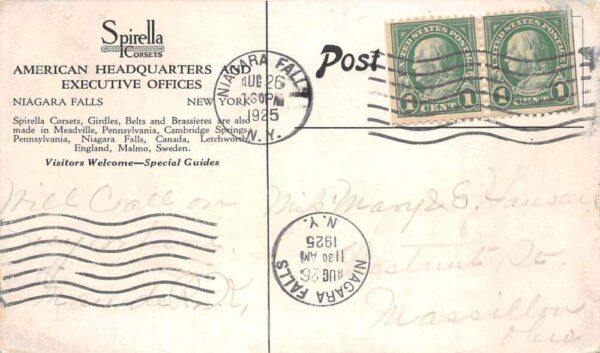 Spirella
CORSETS
AMERICAN HEADQUARTERS AND
EXECUTIVE OFFICES
NIAGARA FALLS NEW YORK
Spirella Corsets, Girdles, Belts and Brassieres are also
made in Meadville, Pennsylvania, Cambridge Springs,
Pennsylvania, Niagara Falls, Canada, Letchworth,
England, Malmo, Sweden.
Visitors Welcome—Special Guides
Will Call on
NIAGARA FALLS
AUG 26
1925
N.Y.
Post
UNITED STATES POSTAGE
1 CENT 1
UNITED STATES POSTAGE
1 CENT 1
Miss Mary E. Hansen
St.,
Massillon
Ohio
NIAGARA FALLS
AUG 26
11 30 AM
1925
N.Y.